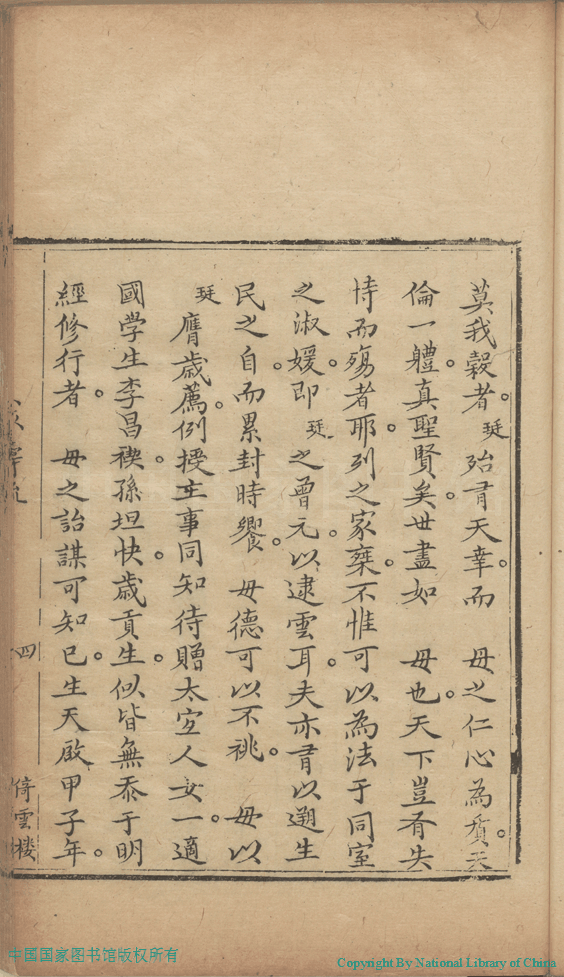 莫我穀者。珽殆有天幸而 毋之仁心為質。天
倫一體。真聖賢矣。世盡如 毋也。天下豈有失
恃而殤者耶。列之家乘。不惟可以為法于同室
之淑媛。即 珽之曾元。以逮雲耳。夫亦有以遡生
民之自。而累封時饗。 毋德可以不祧。 毋以
珽膺歲薦。例授主事同知。待贈太宜人。女一。適
國學生李昌禊。孫坦快。歲貢生。似皆無忝于明
經修行者。 毋之詒謀可知已。生天啟甲子年。
四
倚雲樓
中国国家图书馆版权所有
Copyright By National Library of China